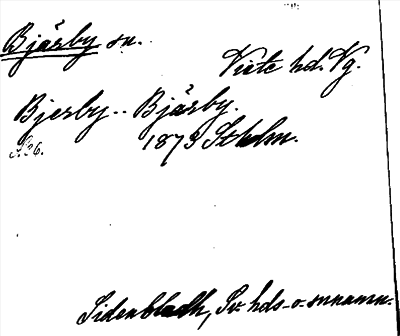 Bjärby sn.
Viste hd. Vg.
Bjerby.. Bjärby.
S. 26. 1873 Sthlm.
Sidenbladh, Sv. hds- o. snnamn.